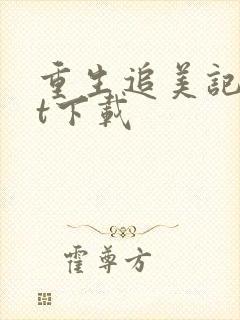 重生追美記
t下載
霍尊方